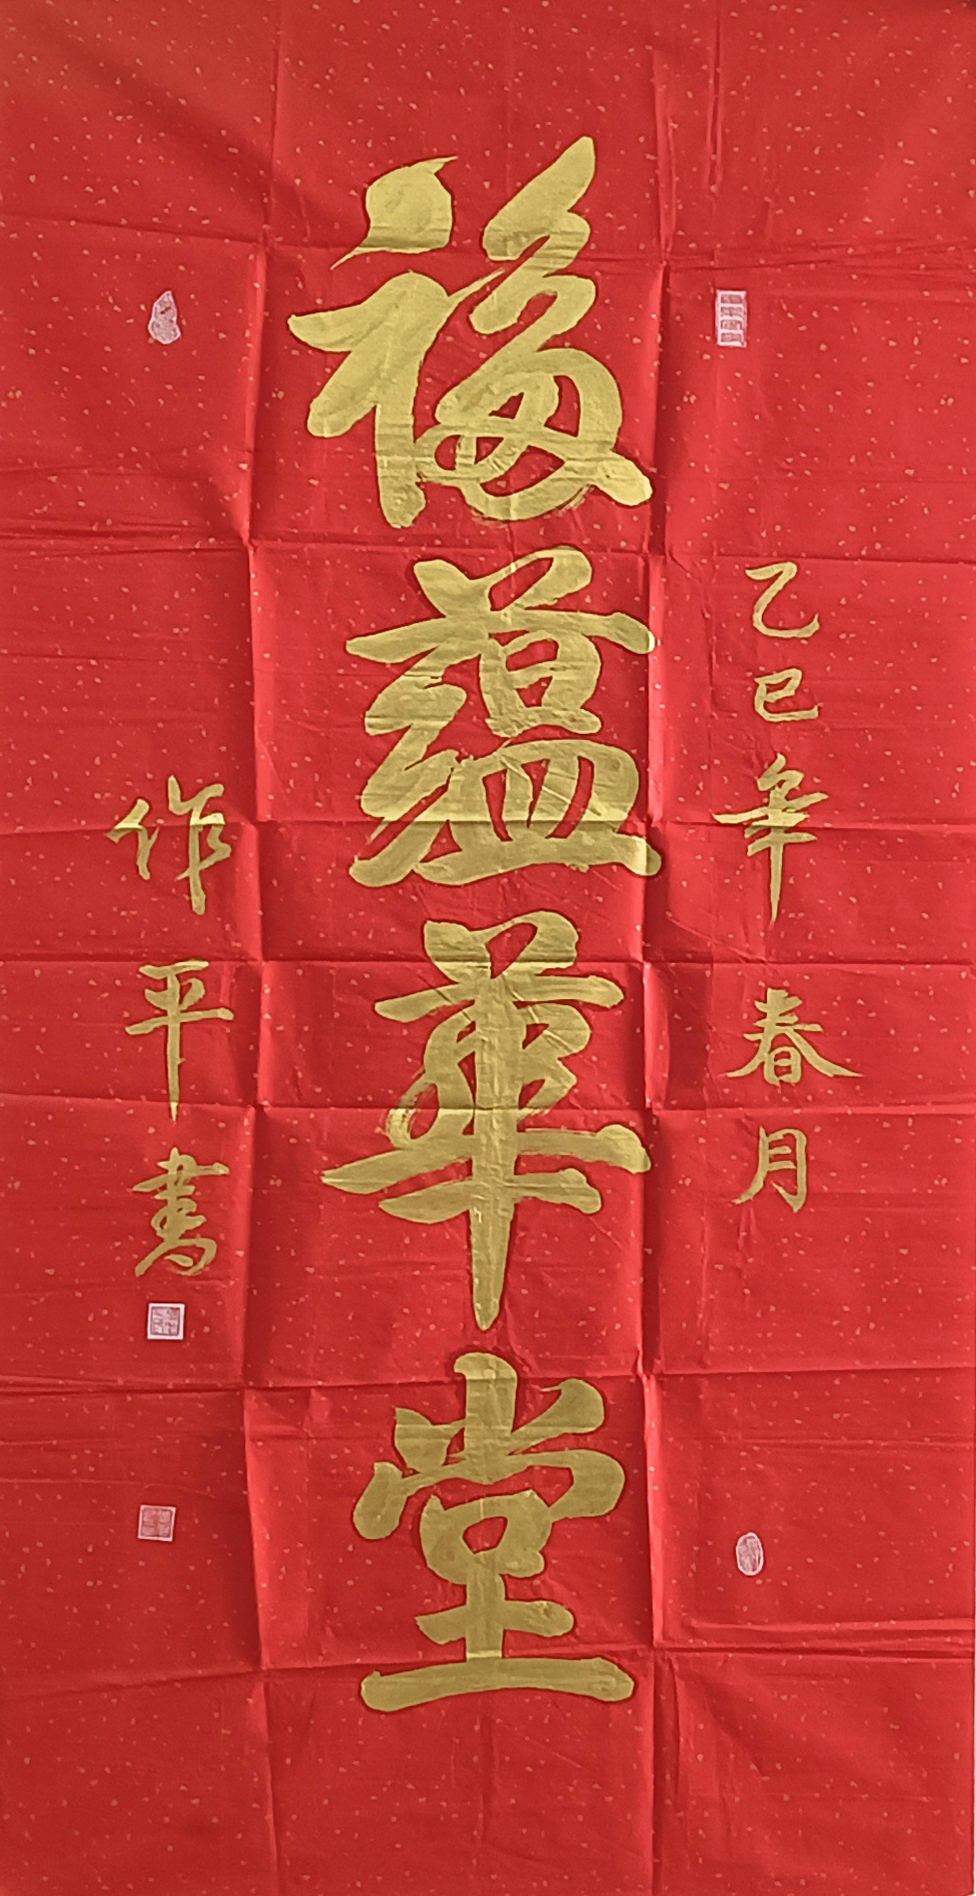 乙巳年 春月
福蘊華堂
作平書